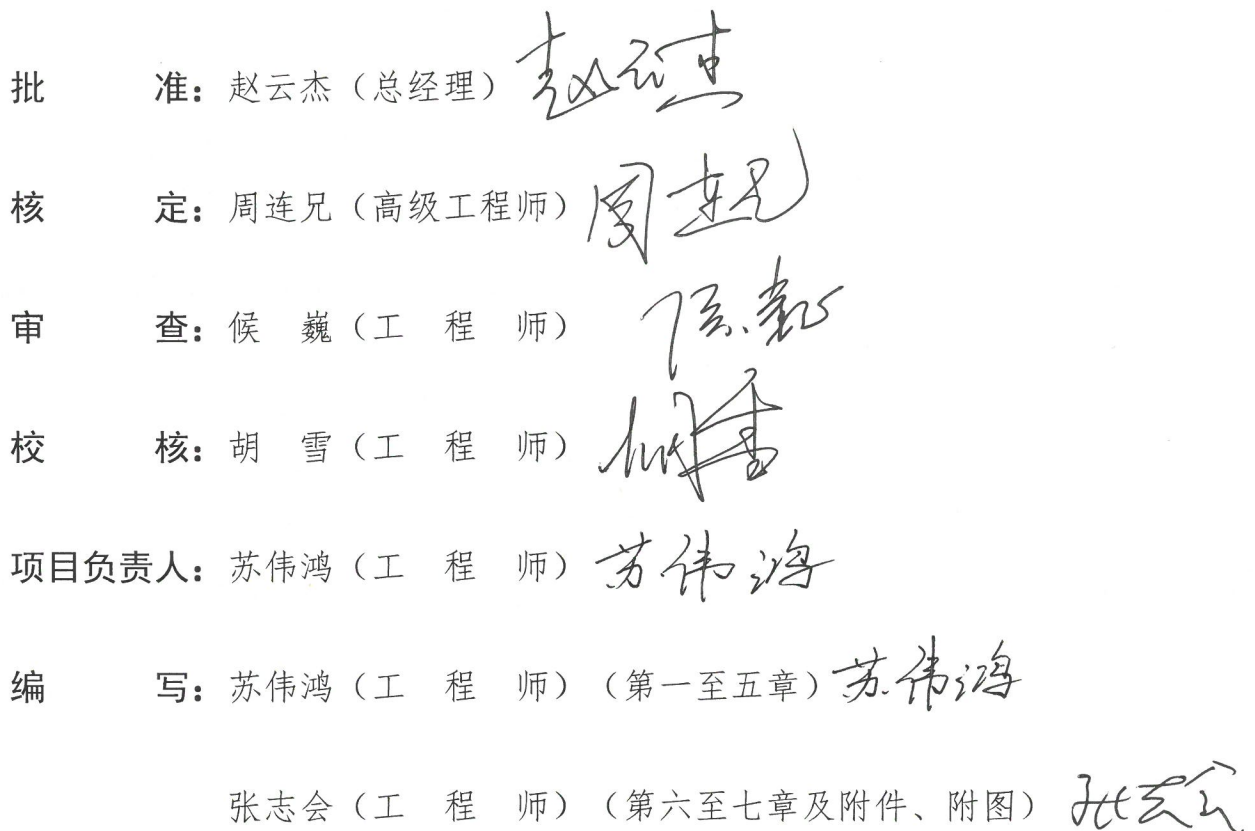 批 准：赵云杰（总经理） 赵云杰
核 定：周连兄（高级工程师） 周连兄
审 查：候 巍（工 程 师） 候巍
校 核：胡 雪（工 程 师） 胡雪
项目负责人：苏伟鸿（工 程 师） 苏伟鸿
编 写：苏伟鸿（工 程 师）（第一至五章） 苏伟鸿
张志会（工 程 师）（第六至七章及附件、附图） 张志会